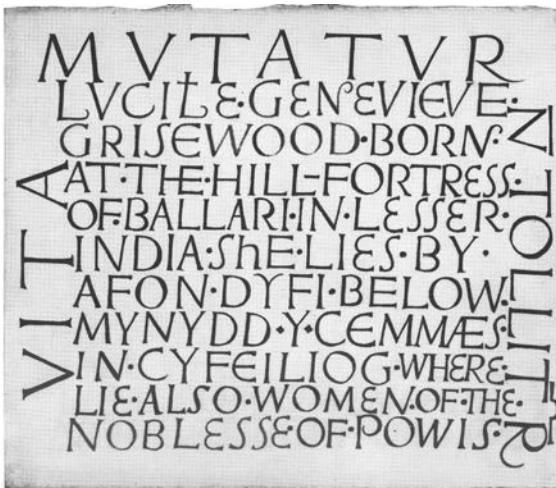 VITA
MVTATVR
N·TOLLITR
LVCILE·GENEVIEVE·
GRISEWOOD·BORN·
AT·THE·HILL-FORTRESS·
OF·BALLARI·IN·LESSER·
INDIA·ShE·LIES·BY·
AFON·DYFI·BELOW·
MYNYDD·Y·CEMMÆS·
IN·CYFEILIOG·WHERE·
LIE·ALSO·WOMEN·OF·THE·
NOBLESSE·OF·POWIS·